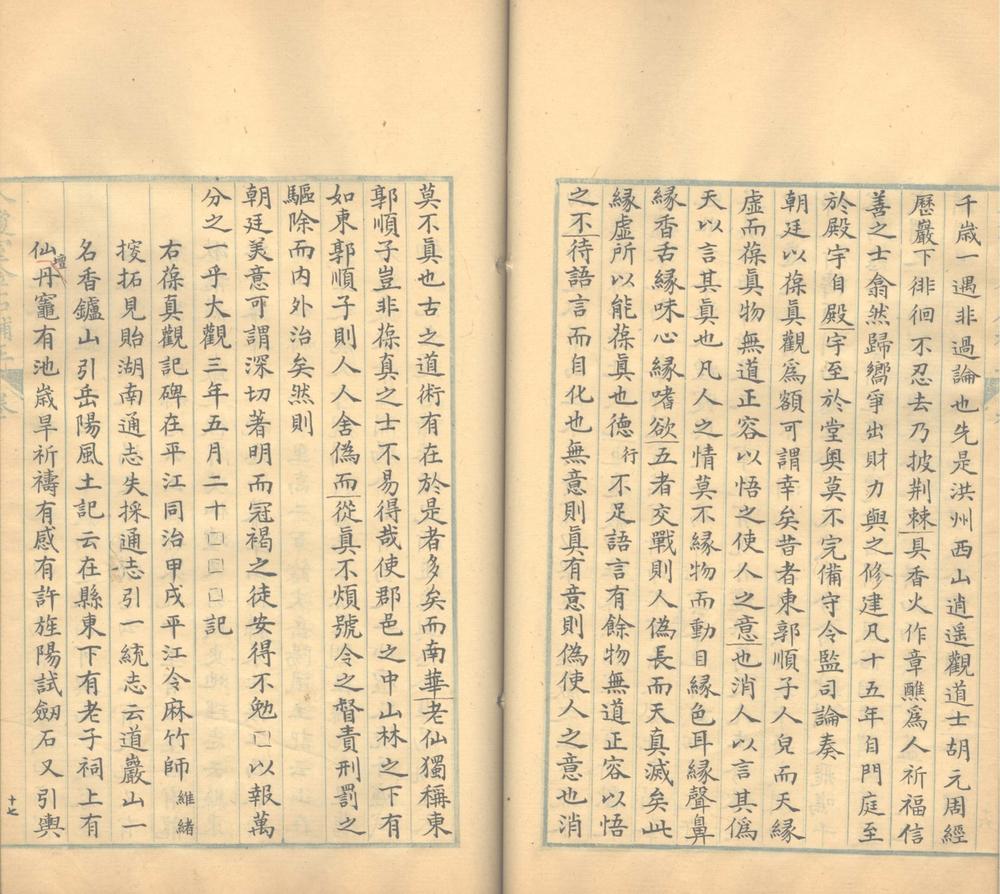 千歲一遇非過論也先是洪州西山逍遥觀道士胡元周經
歷巖下徘徊不忍去乃披荆棘具香火作章醮爲人祈福信
善之士翕然歸嚮爭出財力與之修建凡十五年自門庭至
於殿宇自殿宇至於堂奥莫不完備守令監司論奏
朝廷以葆眞觀爲額可謂幸矣昔者東郭順子人皃而天緣
虚而葆眞物無道正容以悟之使人之意也消人以言其僞
天以言其眞也凡人之情莫不緣物而動目緣色耳緣聲鼻
緣香舌緣味心緣嗜欲五者交戰則人僞長而天真滅矣此
緣虚所以能葆眞也德行不足語言有餘物無道正容以悟
之不待語言而自化也無意則眞有意則僞使人之意也消
莫不眞也古之道術有在於是者多矣而南華老仙獨稱東
郭順子豈非葆真之士不易得哉使郡邑之中山林之下有
如東郭順子則人人舍僞而從眞不煩號令之督責刑罰之
驅除而内外治矣然則
朝廷美意可謂深切著明而冠褐之徒安得不勉□以報萬
分之一乎大觀三年五月二十□□□記
右葆真觀記碑在平江同治甲戌平江令麻竹師維緒
搜拓見貽湖南通志失採通志引一統志云道巖山一
名香鑪山引岳陽風土記云在縣東下有老子祠上有
仙壇丹竈有池歲旱祈禱有感有許旌陽試劒石又引輿
十七